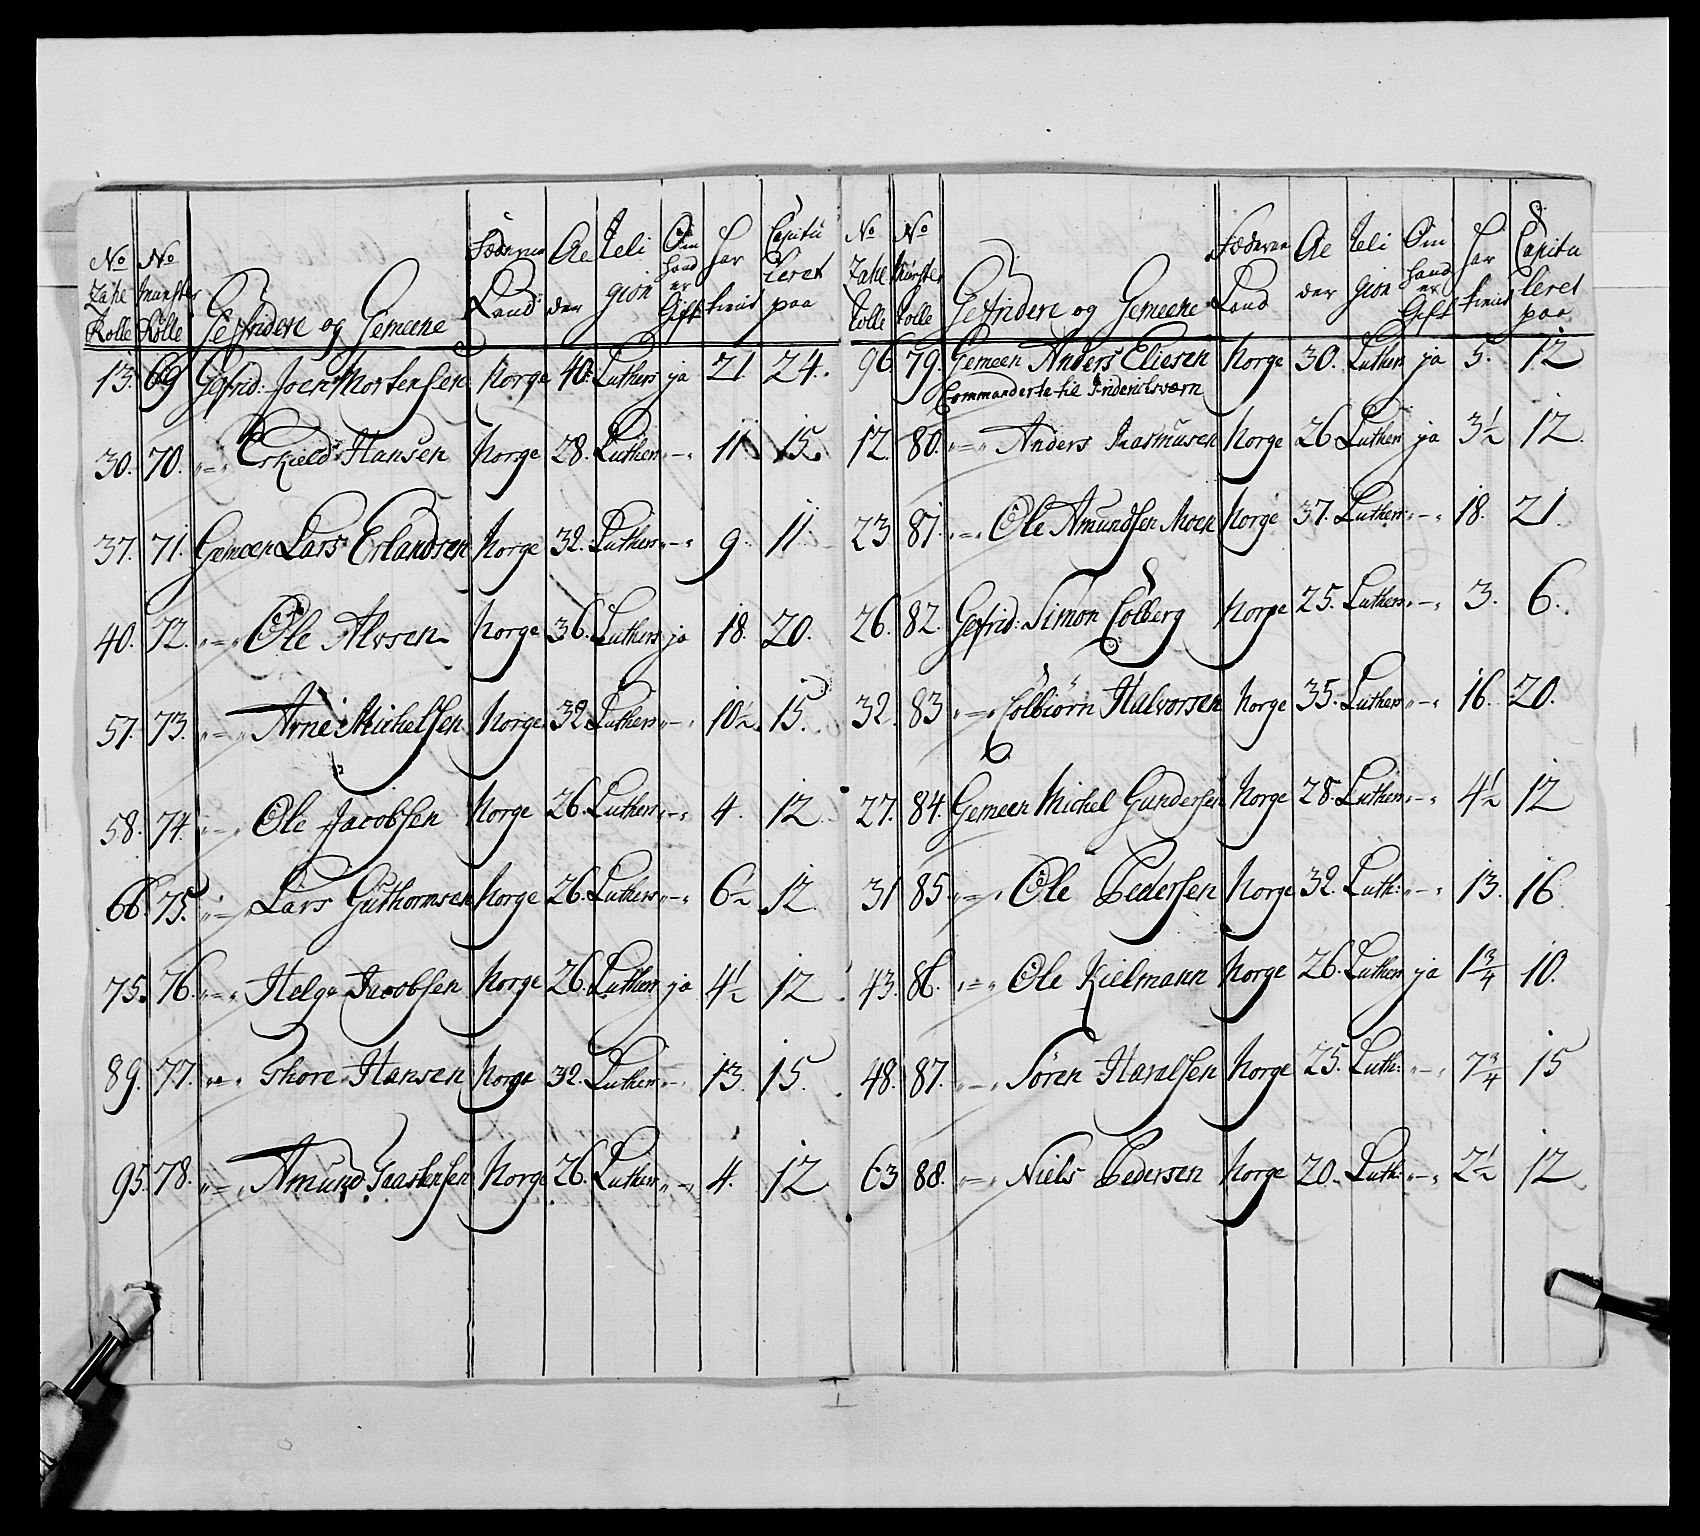 No Zahl Rolle | No Munster Rolle | Gefridere og Gemeene | Fæderne Land | Alder | Religion | Om hand er Gift | har tient | Capituleret paa
13. 69 Gefrid: Joen Mortensen Norge 40. Luthers ja 21. 24.
30. 70. "=" Eskield Hansen Norge 28. Luthers "-" 11. 15.
37. 71. Gemeen Lars Erlandsen Norge 32. Luthers "-" 9. 11.
40. 72. "=" Ole Alvsen Norge 36. Luthers ja 18. 20.
57. 73. "=" Arne Michelsen Norge 32. Luthers "-" 10½ 15.
58. 74. "=" Ole Jacobsen Norge 26. Luthers "-" 4. 12.
66. 75. "=" Lars Guthormsen Norge 26. Luthers "-" 6½ 12.
75. 76. "=" Helge Jacobsen Norge 26. Luthers ja 4½ 12
89. 77. "=" Thore Hansen Norge 32. Luthers "-" 13. 15.
95. 78. "=" Amund Norge 26. Luthers "-" 4. 12
No Zahl Rolle | No Munster Rolle | Gefridere og Gemeene | Fæderne Land | Alder | Religion | Om hand er Gift | har tient | Capituleret paa
96 79. Gemeen Anders Eliesen Norge 30. Luthers ja 5. 12
Commanderte til Friderichsværn
12. 80. "=" Anders Rasmusen Norge 26 Luthers ja 3½ 12.
23 81. "=" Ole Amundsen Moen Norge 37. Luthers "-" 18. 21.
26. 82. Gefrid: Simon Colberg Norge 25. Luthers "-" 3. 6.
32. 83 "=" Colbiörn Halvorsen Norge 35. Luthers "-" 16. 20.
27. 84. Gemeen Michel Gundersen Norge 28. Luthers "-" 4½ 12
31 85 "=" Ole Pedersen Norge 32. Luth: "-" 13. 16
43. 86. "=" Ole Kielmann Norge 26. Luthers ja 1¾ 10.
48. 87. "=" Sören Haralsen Norge 25. Luth: "-" 7¾ 15
63 88. "=" Niels Pedersen Norge 20. Luth: "-" 2½ 12